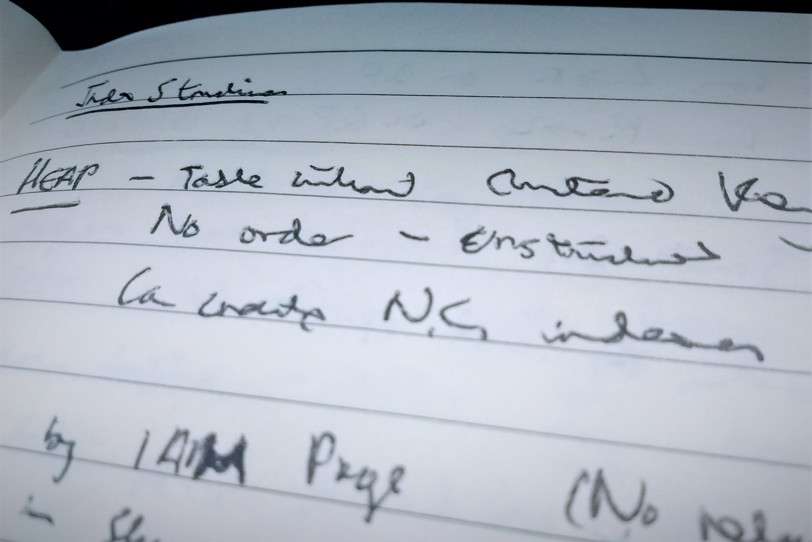 Index Structures
HEAP - Table without Clustered Key
No order - Unstructured -
Can create N.C, indexes
by IAM Page (No
in